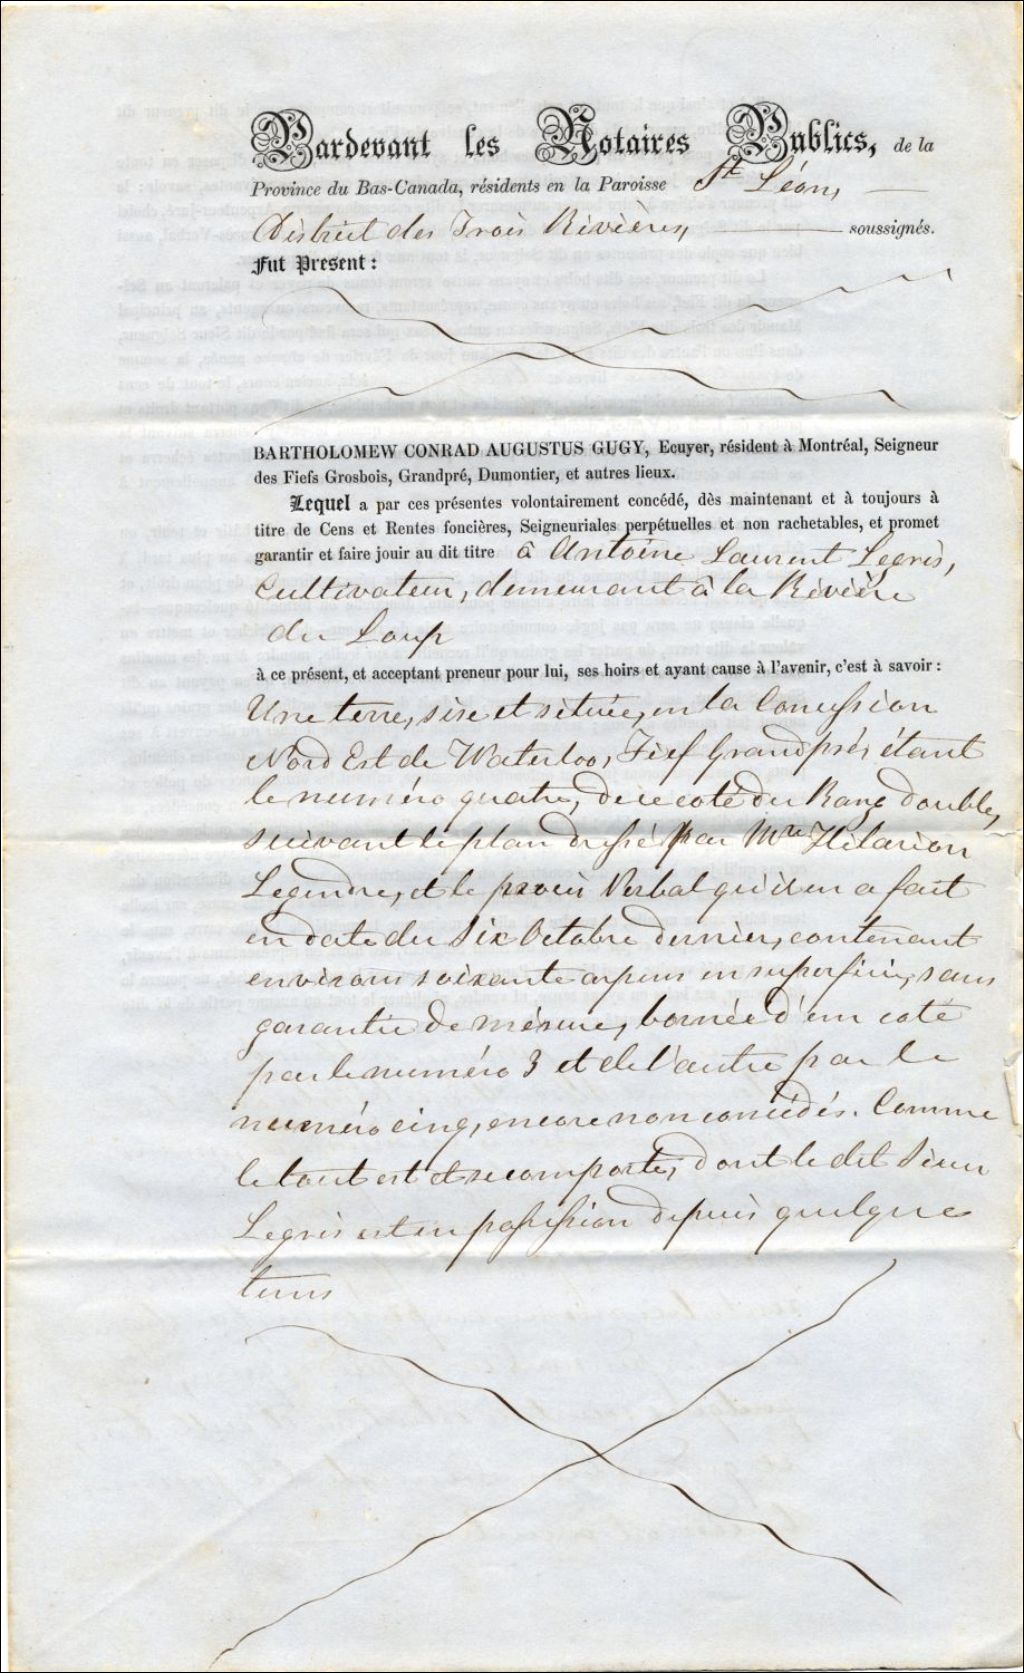 Pardevant les Notaires Publics, de la
Province du Bas-Canada, résidents en la Paroisse St Léon,
District des Trois Rivières, soussignés.
Fut Present :
BARTHOLOMEW CONRAD AUGUSTUS GUGY, Ecuyer, résident à Montréal, Seigneur
des Fiefs Grosbois, Grandpré, Dumontier, et autres lieux.
Lequel a par ces présentes volontairement concédé, dès maintenant et à toujours à
titre de Cens et Rentes foncières, Seigneuriales perpétuelles et non rachetables, et promet
garantir et faire jouir au dit titre à Antoine Laurent Legris,
Cultivateur, demeurant à la Rivière
du Loup
à ce présent, et acceptant preneur pour lui, ses hoirs et ayant cause à l'avenir, c'est à savoir :
Une terre, sise et située, en la Concession
Nord Est de Waterloo, Fief Grandpré, étant
le numéro quatre, de ce coté du Rang double,
suivant le plan dressé par Mtre Hilarion
Legendre, et le procès Verbal qu'il en a fait
en date du Six Octobre dernier, contenant
environ soixante arpens en superficie, sans
garantie de mésure, bornée d'un coté
par le numéro 3 et de l'autre par le
numéro cinq, encore non concédés. Comme
le tout est et se comporte, dont le dit Sieur
Legris est en possession depuis quelque
tems